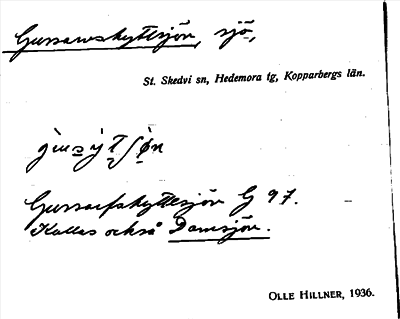 Gussarvskyttsjön, sjö,
St. Skedvi sn, Hedemora tg, Kopparbergs län.
Gussarfskyttesjön G 97.
Kallas också Damsjön.
OLLE HILLNER, 1936.